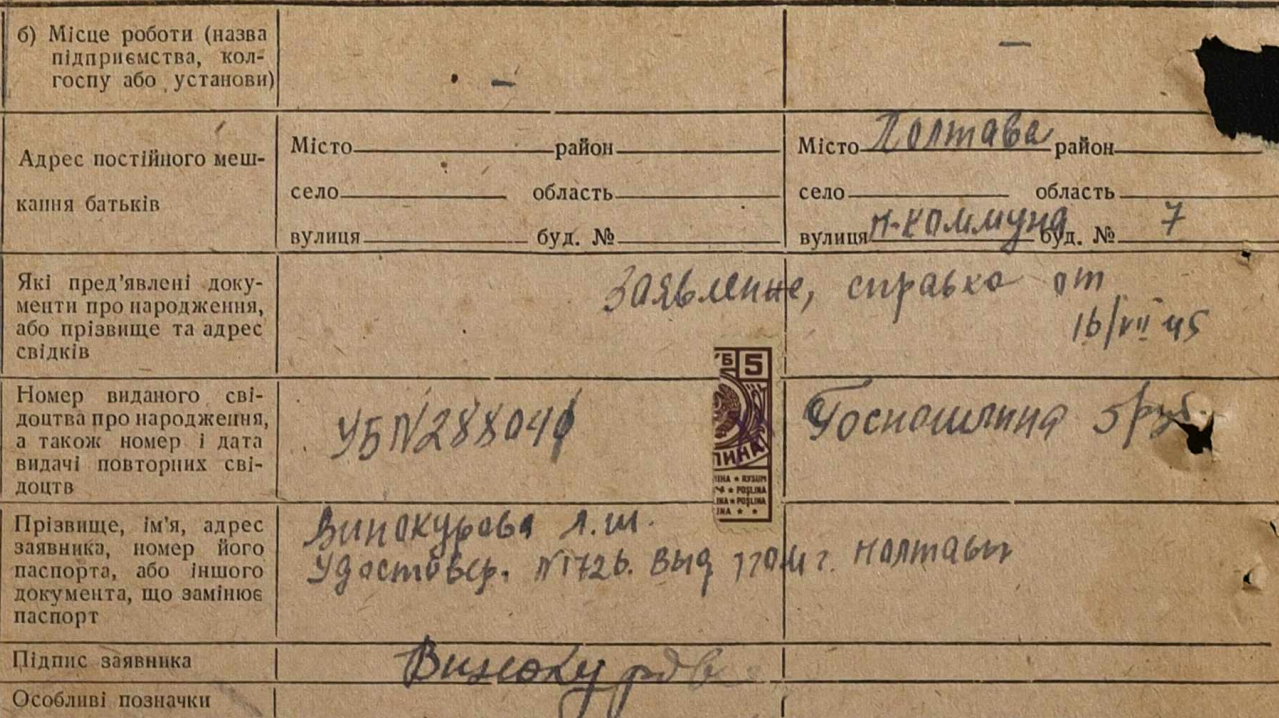 б) Місце роботи (назва
підприємства, кол-
госпу або установи)
—
—
Адрес постійного меш-
кання батьків
Місто район
село область
вулиця буд. №
Місто Полтава район
село область
вулиця п-коммуна буд. № 7
Які пред'явлені доку-
менти про народження,
або прізвище та адрес
свідків
Заявление, справка от
16/VII 45
Номер виданого сві-
доцтва про народження,
а також номер і дата
видачі повторних сві-
доцтв
УБ N
Госпошлина 5 руб.
5
Прізвище, ім'я, адрес
заявника, номер його
паспорта, або іншого
документа, що замінює
паспорт
Винокурова Л.Ш.
Удостовер. N 1726. выд г. Полтавы
Підпис заявника
Винокурова
Особливі позначки